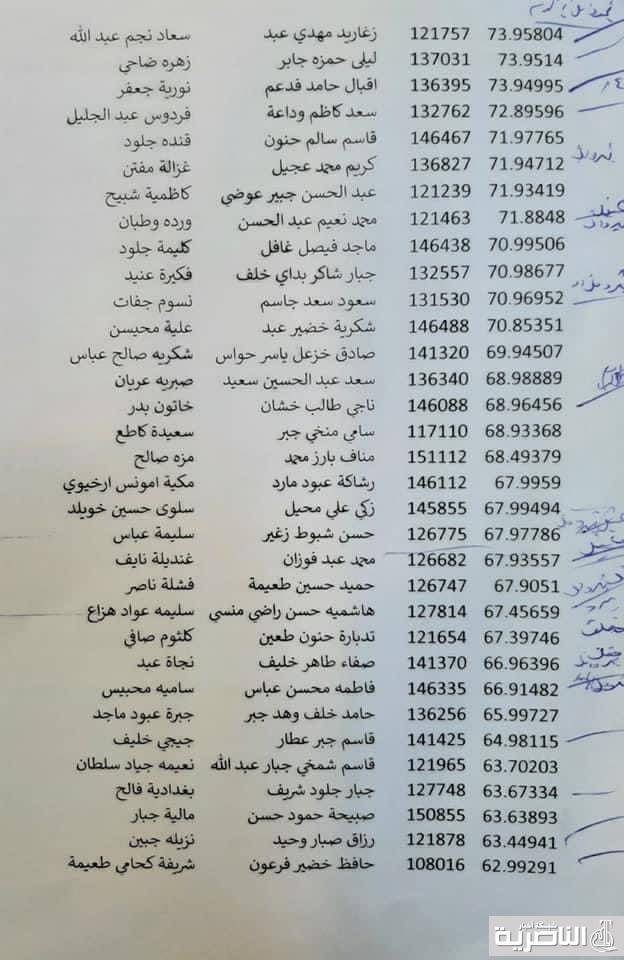 73.95804 121757 زغاريد مهدي عبد سعاد نجم عبد الله
73.9514 137031 ليلى حمزه جابر زهره ضاحي
73.94995 136395 اقبال حامد فدعم نورية جعفر
72.89596 132762 سعد كاظم وداعة فردوس عبد الجليل
71.97765 146467 قاسم سالم حنون قنده جلود
71.94712 136827 كريم محمد عجيل غزالة مفتن
71.93419 121239 عبد الحسن جبير عوضي كاظمية شبيح
71.8848 121463 محمد نعيم عبد الحسن ورده وطبان
70.99506 146438 ماجد فيصل غافل كليمة جلود
70.98677 132557 جبار شاكر بداي خلف فكيرة عنيد
70.96952 131530 سعود سعد جاسم نسوم جفات
70.85351 146488 شكرية خضير عبد علية محيسن
69.94507 141320 صادق خزعل ياسر حواس شكريه صالح عباس
68.98889 136340 سعد عبد الحسين سعيد صبريه عريان
68.96456 146088 ناجي طالب خشان خاتون بدر
68.93368 117110 سامي منخي جبر سعيدة كاطع
68.49379 151112 مناف بارز محمد مزه صالح
67.9959 146112 رشاكة عبود مارد مكية امونس ارخيوي
67.99494 145855 زكي علي محيل سلوى حسين خويلد
67.97786 126775 حسن شبوط زغير سليمة عباس
67.93557 126682 محمد عبد فوزان غنديلة نايف
67.9051 126747 حميد حسين طعيمة فشلة ناصر
67.45659 127814 هاشميه حسن راضي منسي سليمه عواد هزاع
67.39746 121654 تدبارة حنون طعين كلثوم صافي
66.96396 141370 صفاء طاهر خليف نجاة عبد
66.91482 146335 فاطمه محسن عباس ساميه محيبس
65.99727 136256 حامد خلف وهد جبر جبرة عبود ماجد
64.98115 141425 قاسم جبر عطار جيجي خليف
63.70203 121965 قاسم شمخي جبار عبد الله نعيمه جياد سلطان
63.67334 127748 جبار جلود شريف بغدادية فالح
63.63893 150855 صبيحة حمود حسن مالية جبار
63.44941 121878 رزاق صبار وحيد نزيله جبين
62.99291 108016 حافظ خضير فرعون شريفة كحامي طعيمة
شبكة أخبار
الناصرية